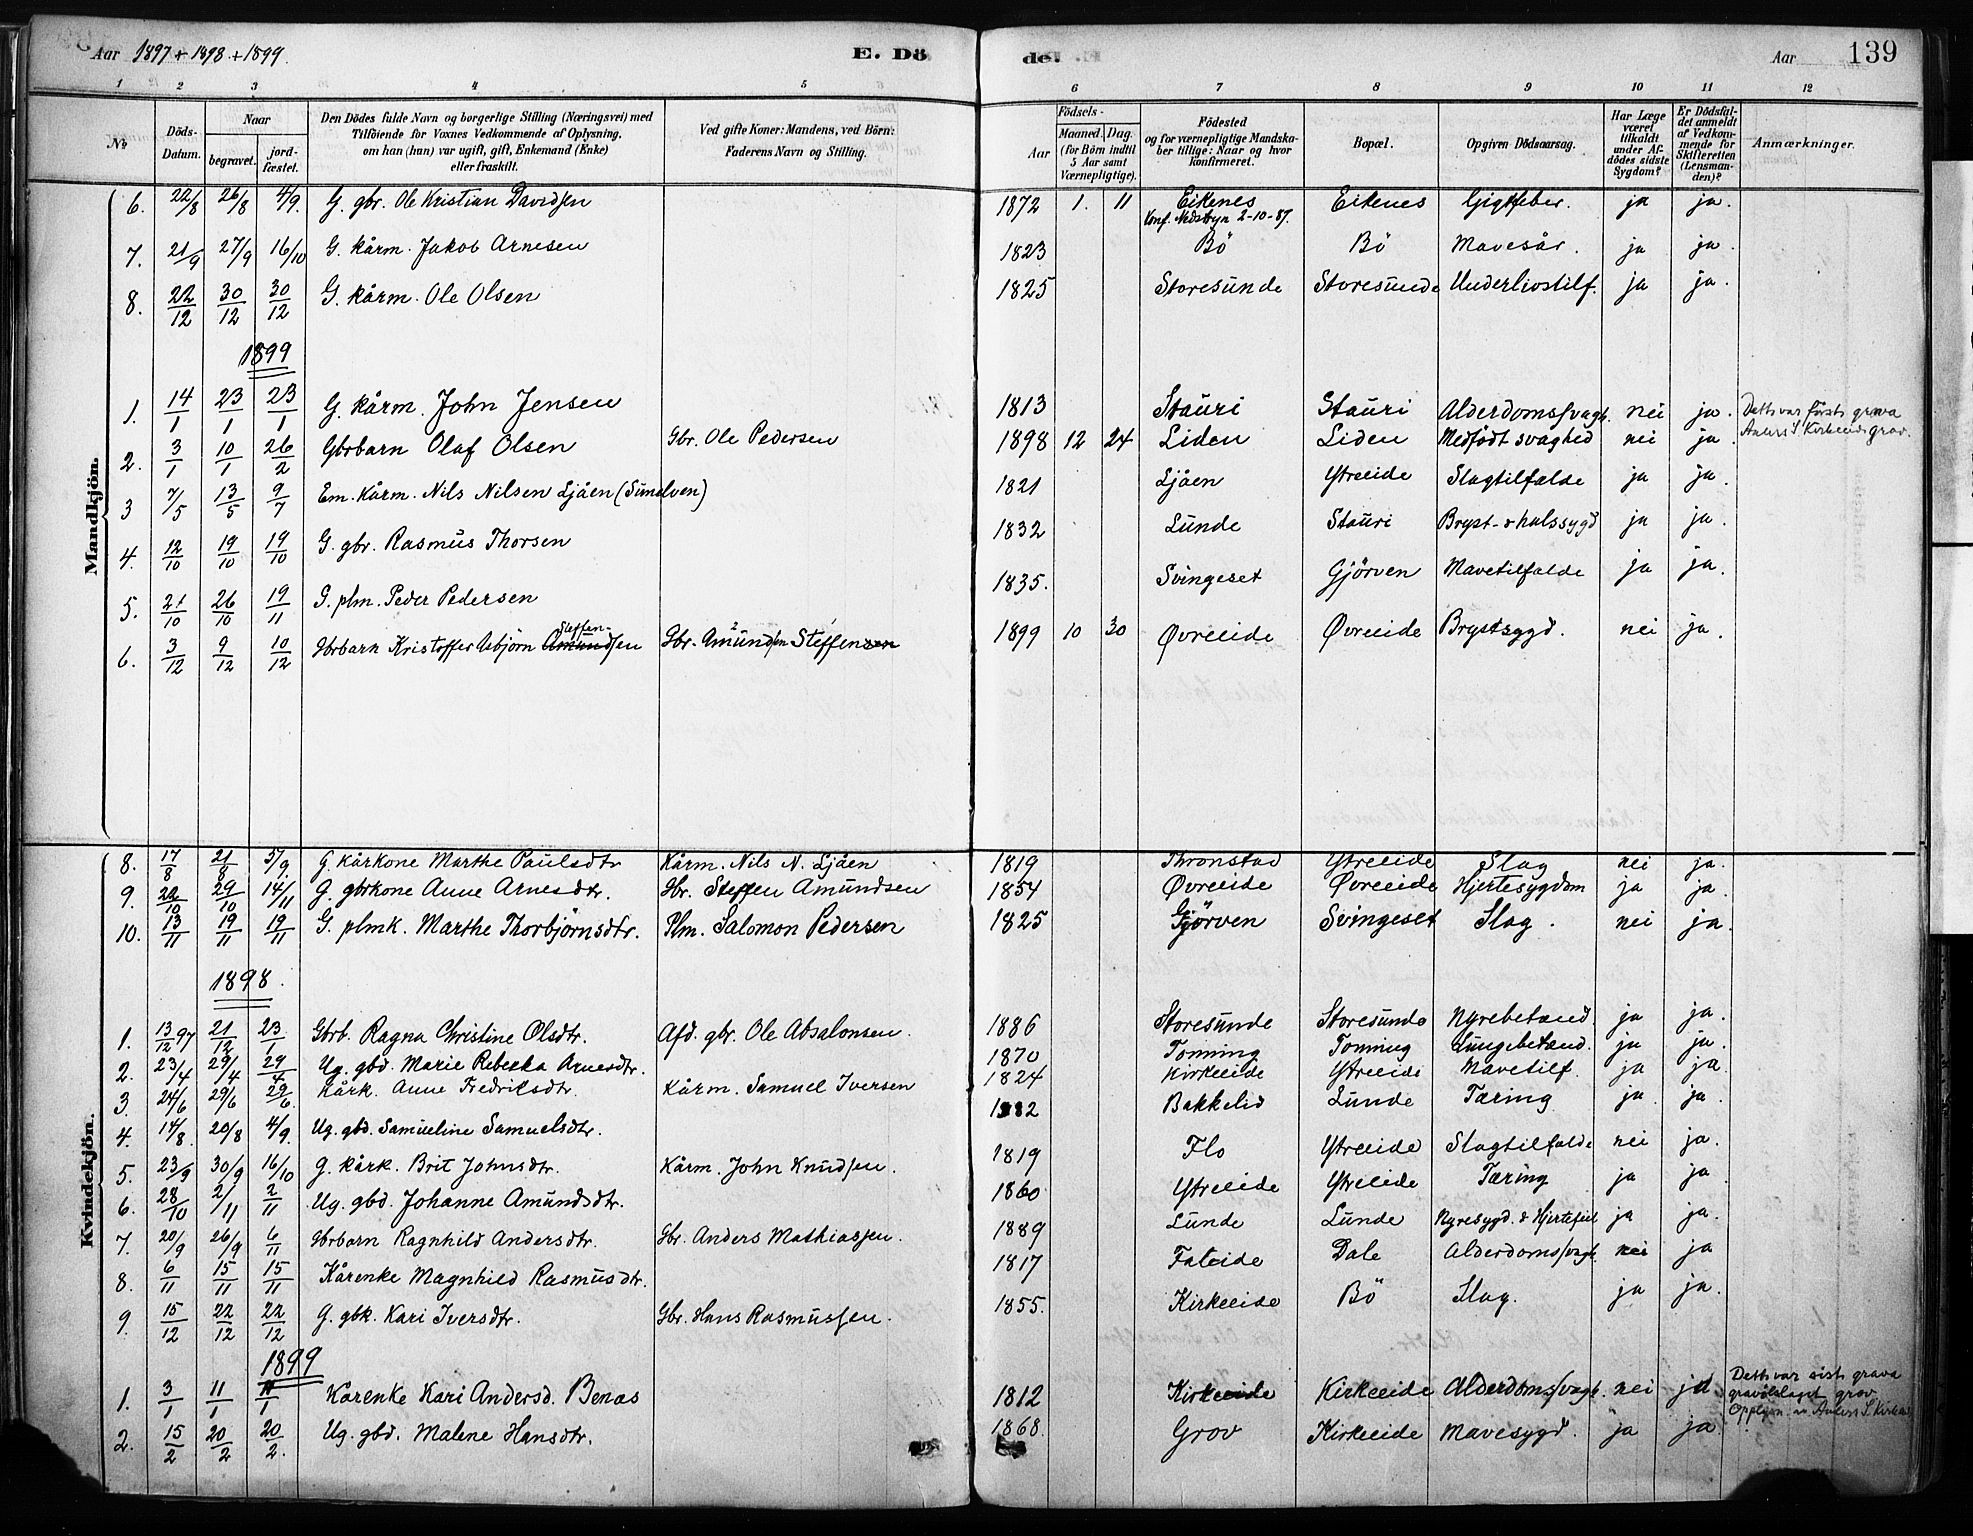 Aar 1897 + 1898 + 1899. E. Dö de. Aar 139
1 2 3 4 5 6 7 8 9 10 11 12
No Döds-Datum. Naar begravet. jord-fæstet. Den Dödes fulde Navn og borgerlige Stilling (Næringsvei) med Tilföiende for Voxnes Vedkommende af Oplysning, om han (hun) var ugift, gift, Enkemand (Enke) eller fraskilt. Ved gifte Koner: Mandens, ved Börn: Faderens Navn og Stilling. Födsels- Aar Maaned. Dag. (for Börn indtil 5 Aar samt Værnepligtige). Födested og for værnepligtige Mandskaber tillige: Naar og hvor konfirmeret. Bopæl. Opgiven Dödsaarsag. Har Læge været tilkaldt under Afdödes sidste Sygdom? Er Dödsfaldet anmeldt af Vedkommende for Skifteretten (Lensmanden)? Anmærkninger.
Mandkjön.
6. 22/8 26/8 4/9. G. gbr. Ole Kristian Davidsen 1872 1. 11 Eikenes Konf. Nedstryn 2-10-87. Eikenes Gigtfeber. ja ja.
7. 21/9 27/9 16/10 G. kårm. Jakob Arnesen 1823 Bö Bö Mavesår. ja ja.
8. 22/12 30/12 30/12 G. kårm. Ole Olsen 1825 Storesunde Storesunde Underlivstilf. ja ja.
1899
1. 14/1 23/1 23/1 G. kårm. John Jensen 1813 Stauri Stauri Alderdomssvagh. nei ja. Dette var första grava
2. 3/1 10/1 26/2 Gbrbarn Olaf Olsen Gbr. Ole Pedersen 1898 12 24 Liden Liden Medfödt svaghed nei ja Anders S Kirkeeide grav.
3 7/5 13/5 9/7 Em. Kårm. Nils Nilsen Ljåen (Sunelven) 1821 Ljåen Ytreeide Slagtilfælde ja ja.
4. 12/10 19/10 19/10 G. gbr. Rasmus Thorsen 1832 Lunde Stauri Bryst- & halssygd ja ja.
5. 21/10 26/10 19/11 G. plm. Peder Pedersen 1835. Svingeset Gjörven Mavetilfælde ja ja.
6. 3/12 9/12 10/12 Gbrbarn Kristoffer Asbjörn Amundsen Steffen- Gbr. Amundsen Steffensen 1899 10 30 Øvreeide Øvreeide Brystsygd. nei ja.
Kvindekjön.
8. 17/8 21/8 5/9. G. kårkone Marthe Paulsdtr Kårm. Nils N. Ljåen 1819 Thronstad Ytreeide Slag nei ja.
9. 22/10 29/10 14/11 G. gbrkone Anne Arnesdtr. Gbr. Steffen Amundsen 1854 Øvreeide Øvreeide Hjertesygdom ja ja.
10. 13/11 19/11 19/11 G. plmk. Marthe Thorbjörnsdtr. Plm. Salomon Pedersen 1825 Gjörven Svingeset Slag. nei ja.
1898.
1. 13/12 97 21/12 23/1 Gbrb. Ragna Christine Olsdtr. Afd. gbr. Ole Absalonsen. 1886 Storesunde Storesunde Nyrebetænd. ja ja.
2. 23/4 29/4 29/4 Ug. gbd. Marie Rebekka Arnesdtr. 1870 Tonning Tonning Lungebetænd. ja ja.
3. 24/6 29/6 29/6. Kårk. Anne Fredriksdtr. Kårm. Samuel Iversen 1824 Kirkeeide Ytreeide Mavetilf. ja ja.
4. 14/8. 20/8 4/9. Ug. gbd. Samueline Samuelsdtr. 1882 Bakkelid Lunde Tæring ja ja.
5. 23/9 30/9 16/10 G. kårk. Brit Johnsdtr. Kårm. John Knudsen. 1819 Flo Ytreeide Slagtilfælde nei ja.
6. 28/10 2/11 2/11 Ug. gbd. Johanne Amundsdtr. 1860 Ytreeide Ytreeide Tæring ja ja
7. 20/9 26/9 6/11 Gbrbarn Ragnhild Andersdtr. Gbr. Anders Mathiassen. 1889 Lunde Lunde Nyresygd. & Hjertefeil ja ja.
8. 6/11 15/11 15/11 Kårenke Magnhild Rasmusdtr. 1817 Faleide Dale Alderdomssvagh. nei ja
9. 15/12 22/12 22/12 G. gbk. Kari Iversdtr. Gbr. Hans Rasmussen. 1855. Kirkeeide Bö Slag. ja ja.
1899
1. 3/1 11/1 11/1 Kårenke Kari Andersd. Benas 1812 Kirkeeide Kirkeeide Alderdomssvagh. nei ja Dette var siste grava gravölslaget grav Opplysn. av Anders S Kirkeeide
2. 15/2 20/2 20/2. Ug. gbd. Malene Hansdtr. 1868. Grov Kirkeeide Mavesygd. ja ja.